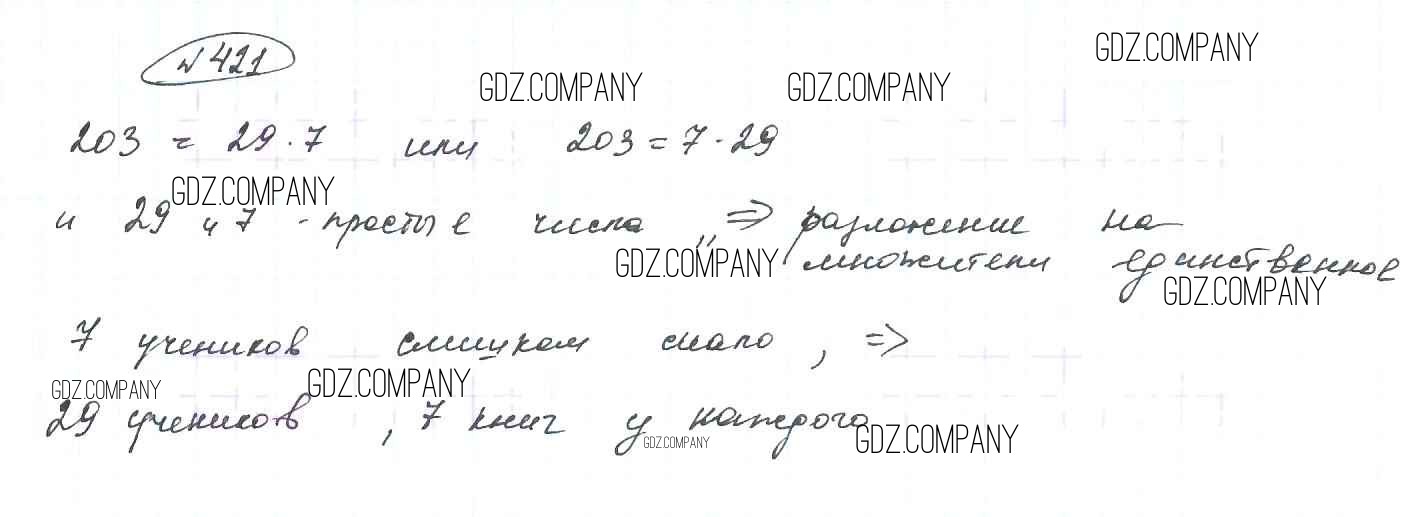 № 421
GDZ.COMPANY
GDZ.COMPANY GDZ.COMPANY
203 = 29 · 7 или 203 = 7 · 29
GDZ.COMPANY
и 29 и 7 - простые числа ,, => разложение на
GDZ.COMPANY множители единственное
GDZ.COMPANY
7 учеников слишком мало , =>
GDZ.COMPANY GDZ.COMPANY
29 учеников , 7 книг у каждого
GDZ.COMPANY GDZ.COMPANY